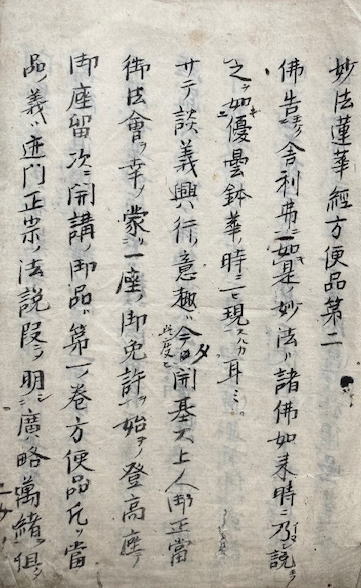 妙法蓮華經方便品第二
佛告舎利弗ニ如是ノ妙法ハ諸佛如来時ニ乃シ説
之ヲ如キニ優曇鉢華ノ時ニ一ヒ現スルカ耳ミ
サテ談義興行ノ意趣ハ今日開基大上人御正當
御法會ヲ幸ノ蒙リ一座ノ御免許ヲ始テ登高座ノ
御座留次ニ開講ノ御品ハ第一ノ巻方便品凡ソ當
品ノ義ハ迹门正宗ノ法說段ヲ明シ廣略萬緒ヲ俱